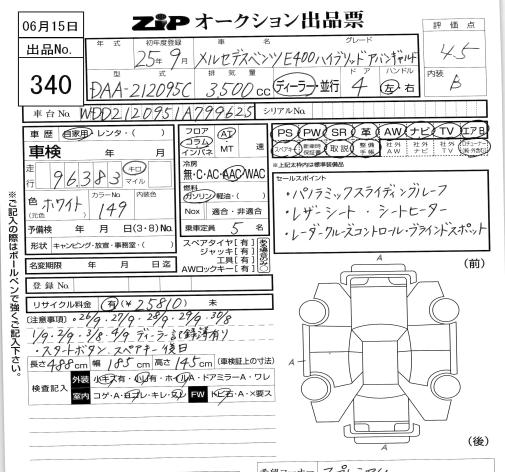 06月15日
ZIP オークション出品票
評価点
4.5
内装
B
出品No.
340
年式
初年度登録
25年9月
車名
グレード
メルセデスベンツE400ハイブリッドアバンギャルド
型式
排気量
ドア
ハンドル
DAA-212095C 3500cc ディーラー・並行 4 左・右
車台No.
WDD2120951A799625
シリアルNo.
車歴 自家用・レンタ・( )
車検 年 月
走行 96,383 キロ マイル
色(元色) ホワイト カラーNo. 149 内装色
予備検 年 月 日 (3・8) No.
形状 キャンピング・放宣・事務室・( )
名変期限 年 月 日 迄
登録No.
フロア コラム インパネ AT MT 速
冷房
無・C・AC・AAC・WAC
燃料
ガソリン・軽油・( )
Nox 適合・非適合
乗車定員 5 名
スペアタイヤ [有]
ジャッキ [有]
工具 [有]
AWロックキー [有]
PS PW SR 革 AW ナビ TV エアB
スペアキー 新車時保証書 取説 整備手帳 社外AW 社外ナビ 社外TV
※上記太枠内は標準装備品
セールスポイント
・パノラミックスライディングルーフ
・レザーシート・シートヒーター
・レーダークルーズコントロール・ブラインドスポット
リサイクル料金 有 (¥25810) 未
[注意事項] °26/9.27/9.28/9.29/9.30/8
1/9.2/9.3/8.4/9 ディーラー記録簿有り
・スタートボタン、スペアキー後日
長さ488cm 幅185cm 高さ145cm (車検証上の寸法)
検査記入 外装 小キズ有・小凹有・ホイルA・ドアミラーA・ワレ
室内 コゲ・A・ヨゴレ・キレ・スレ FW トビ石・A・×要ス
※ご記入の際はボールペンで強くご記入下さい。
(前)
A
A
A
A
(後)